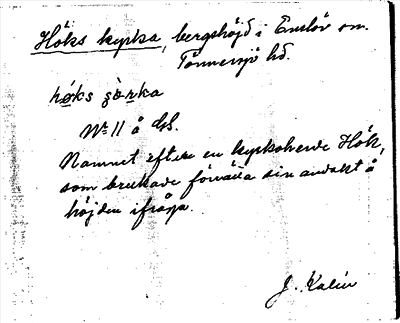 Höks kyrka, bergshöjd i Enslöv sn.
Tönnersjö hd.
høks
No 11 å GS.
Namnet efter en kyrkoherde Hök,
som brukade förrätta sin andakt å
höjden ifråga.
J. Kalén